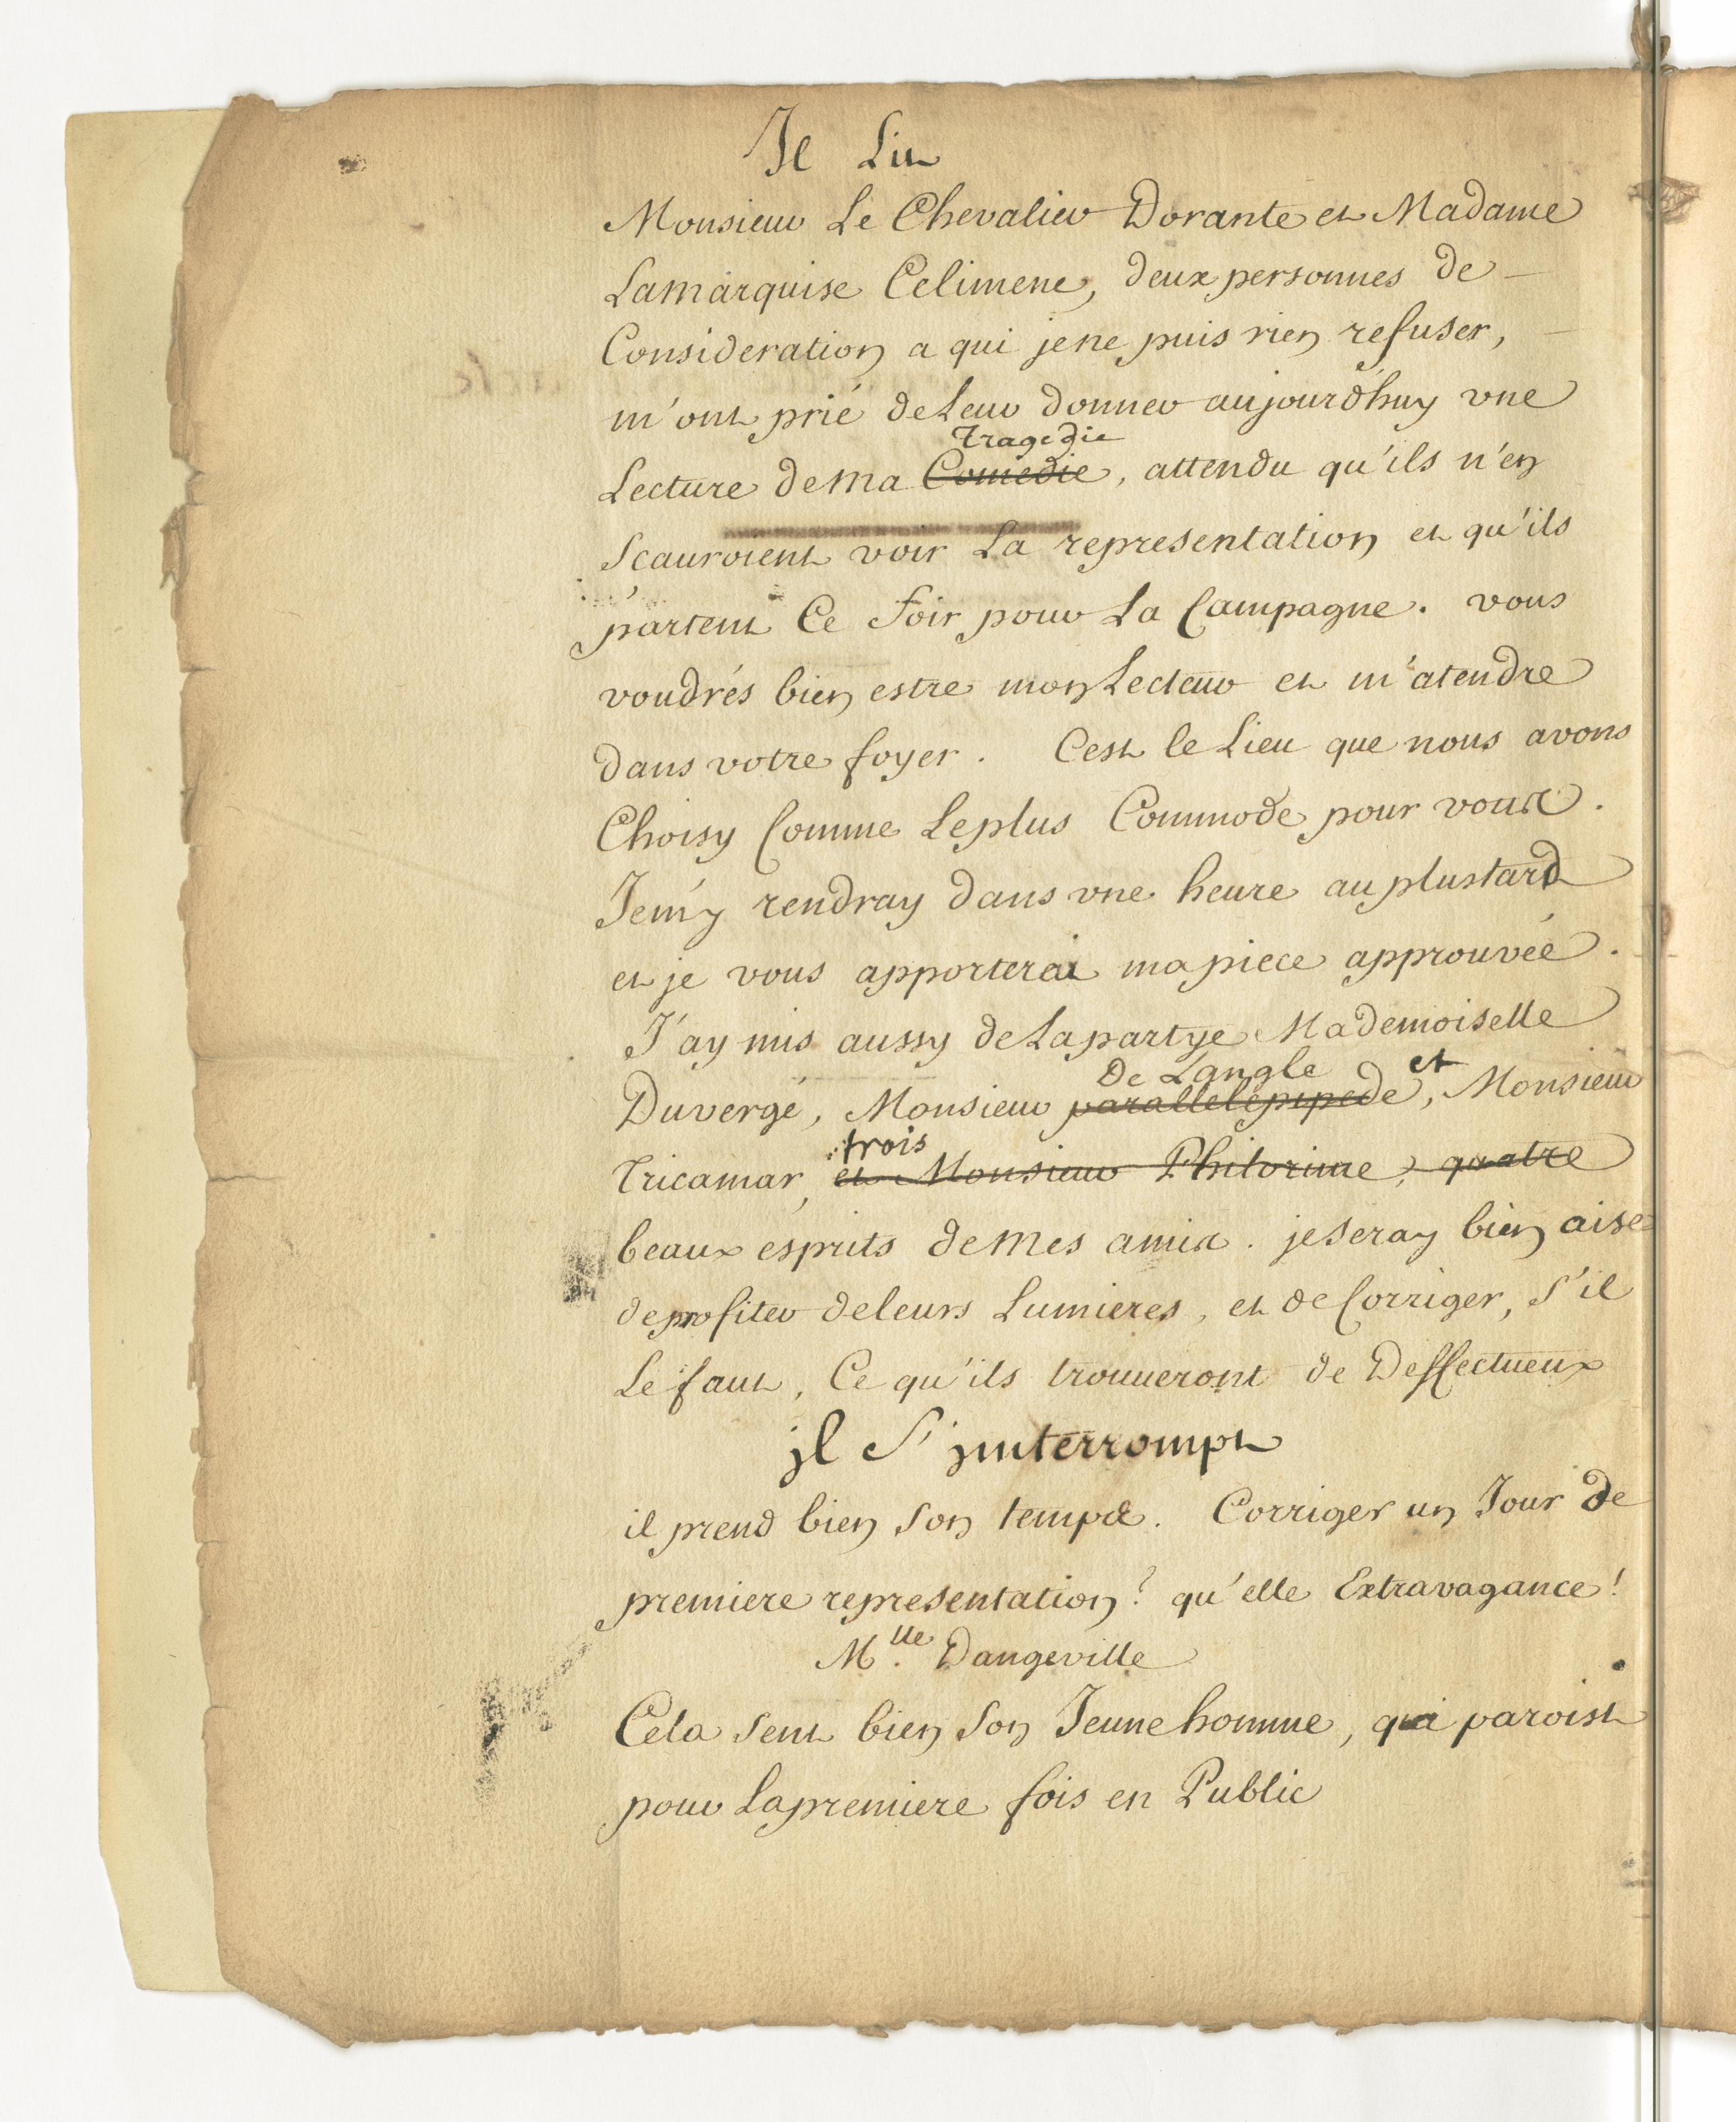 Il Lit
Monsieur Le Chevalier Dorante et Madame
La marquise Celimene, deux personnes de
Consideration a qui je ne puis rien refuser,
m'ont prié de Leur donner aujourd'huy vne
Tragedie
Lecture de ma Comédie, attendu qu'ils n'en
Scauroient voir La representation et qu'ils
partent Ce Soir pour La Campagne. vous
voudrés bien estre mon Lecteur et m'atendre
dans votre foyer. C'est le Lieu que nous avons
Choisy Comme Le plus Commode pour vous.
Je m'y rendray dans vne heure au plustard
et je vous apporterai ma piece approuvée.
J'ay mis aussy de La partye Mademoiselle
De L'angle et
Duvergé, Monsieur parallelepipede, Monsieur
trois
Tricamar, et Monsieur Philorime, quatre
beaux esprits de mes amis. je seray bien aise
de profiter de leurs Lumieres, et de Corriger, S'il
Le faut, Ce qu'ils trouueront de Deffectueux
jl S'jnterrompt
il prend bien Son temps. Corriger un Jour de
premiere representation? qu'elle Extravagance!
Mlle. Dangeville
Cela Sent bien Son Jeune homme, qui paroist
pour La premiere fois en Public